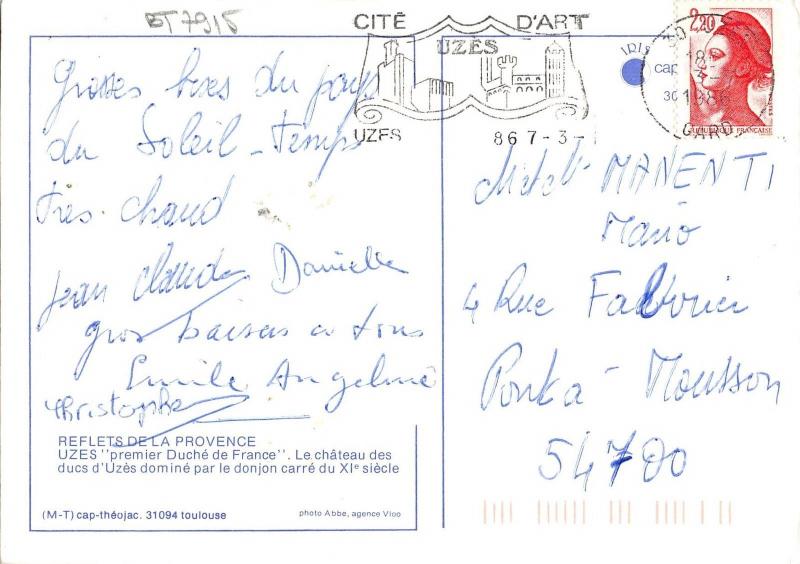 BT7915
CITÉ D'ART
UZÈS
UZES 86 7-3-
IRIS
cap
30
2,20
RÉPUBLIQUE FRANÇAISE
18
1986
GARD
Grosses bises du pays
du Soleil - Temps
très chaud
Jean Claude Danielle
gros baisers a tous
Emile Angeline
Christophe
REFLETS DE LA PROVENCE
UZES "premier Duché de France". Le château des
ducs d'Uzès dominé par le donjon carré du XIe siècle
(M-T) cap-théojac. 31094 toulouse
photo Abbe, agence Vloo
MANENTI
Mario
4 Rue Fabvrier
Ponta-Mousson
54700